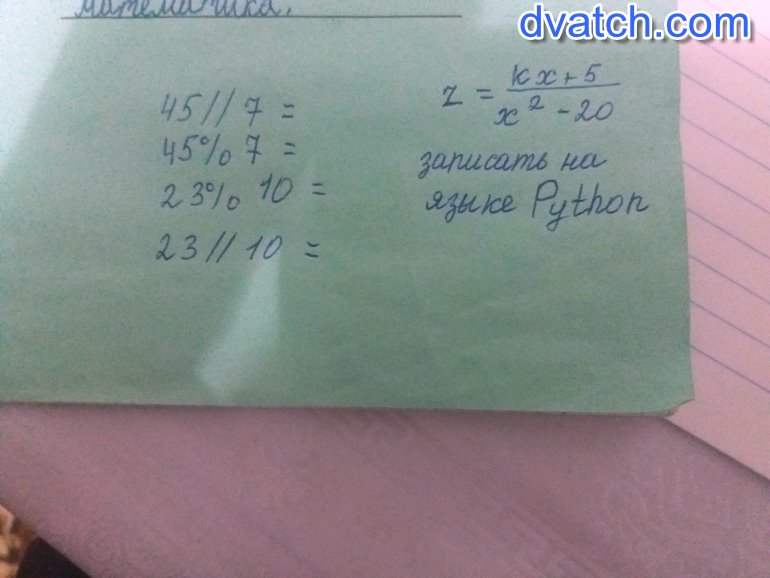 dvatch.com
математика.
45//7 =
45%7 =
23% 10 =
23//10 =
z = kx+5
x² -20
записать на
языке Python